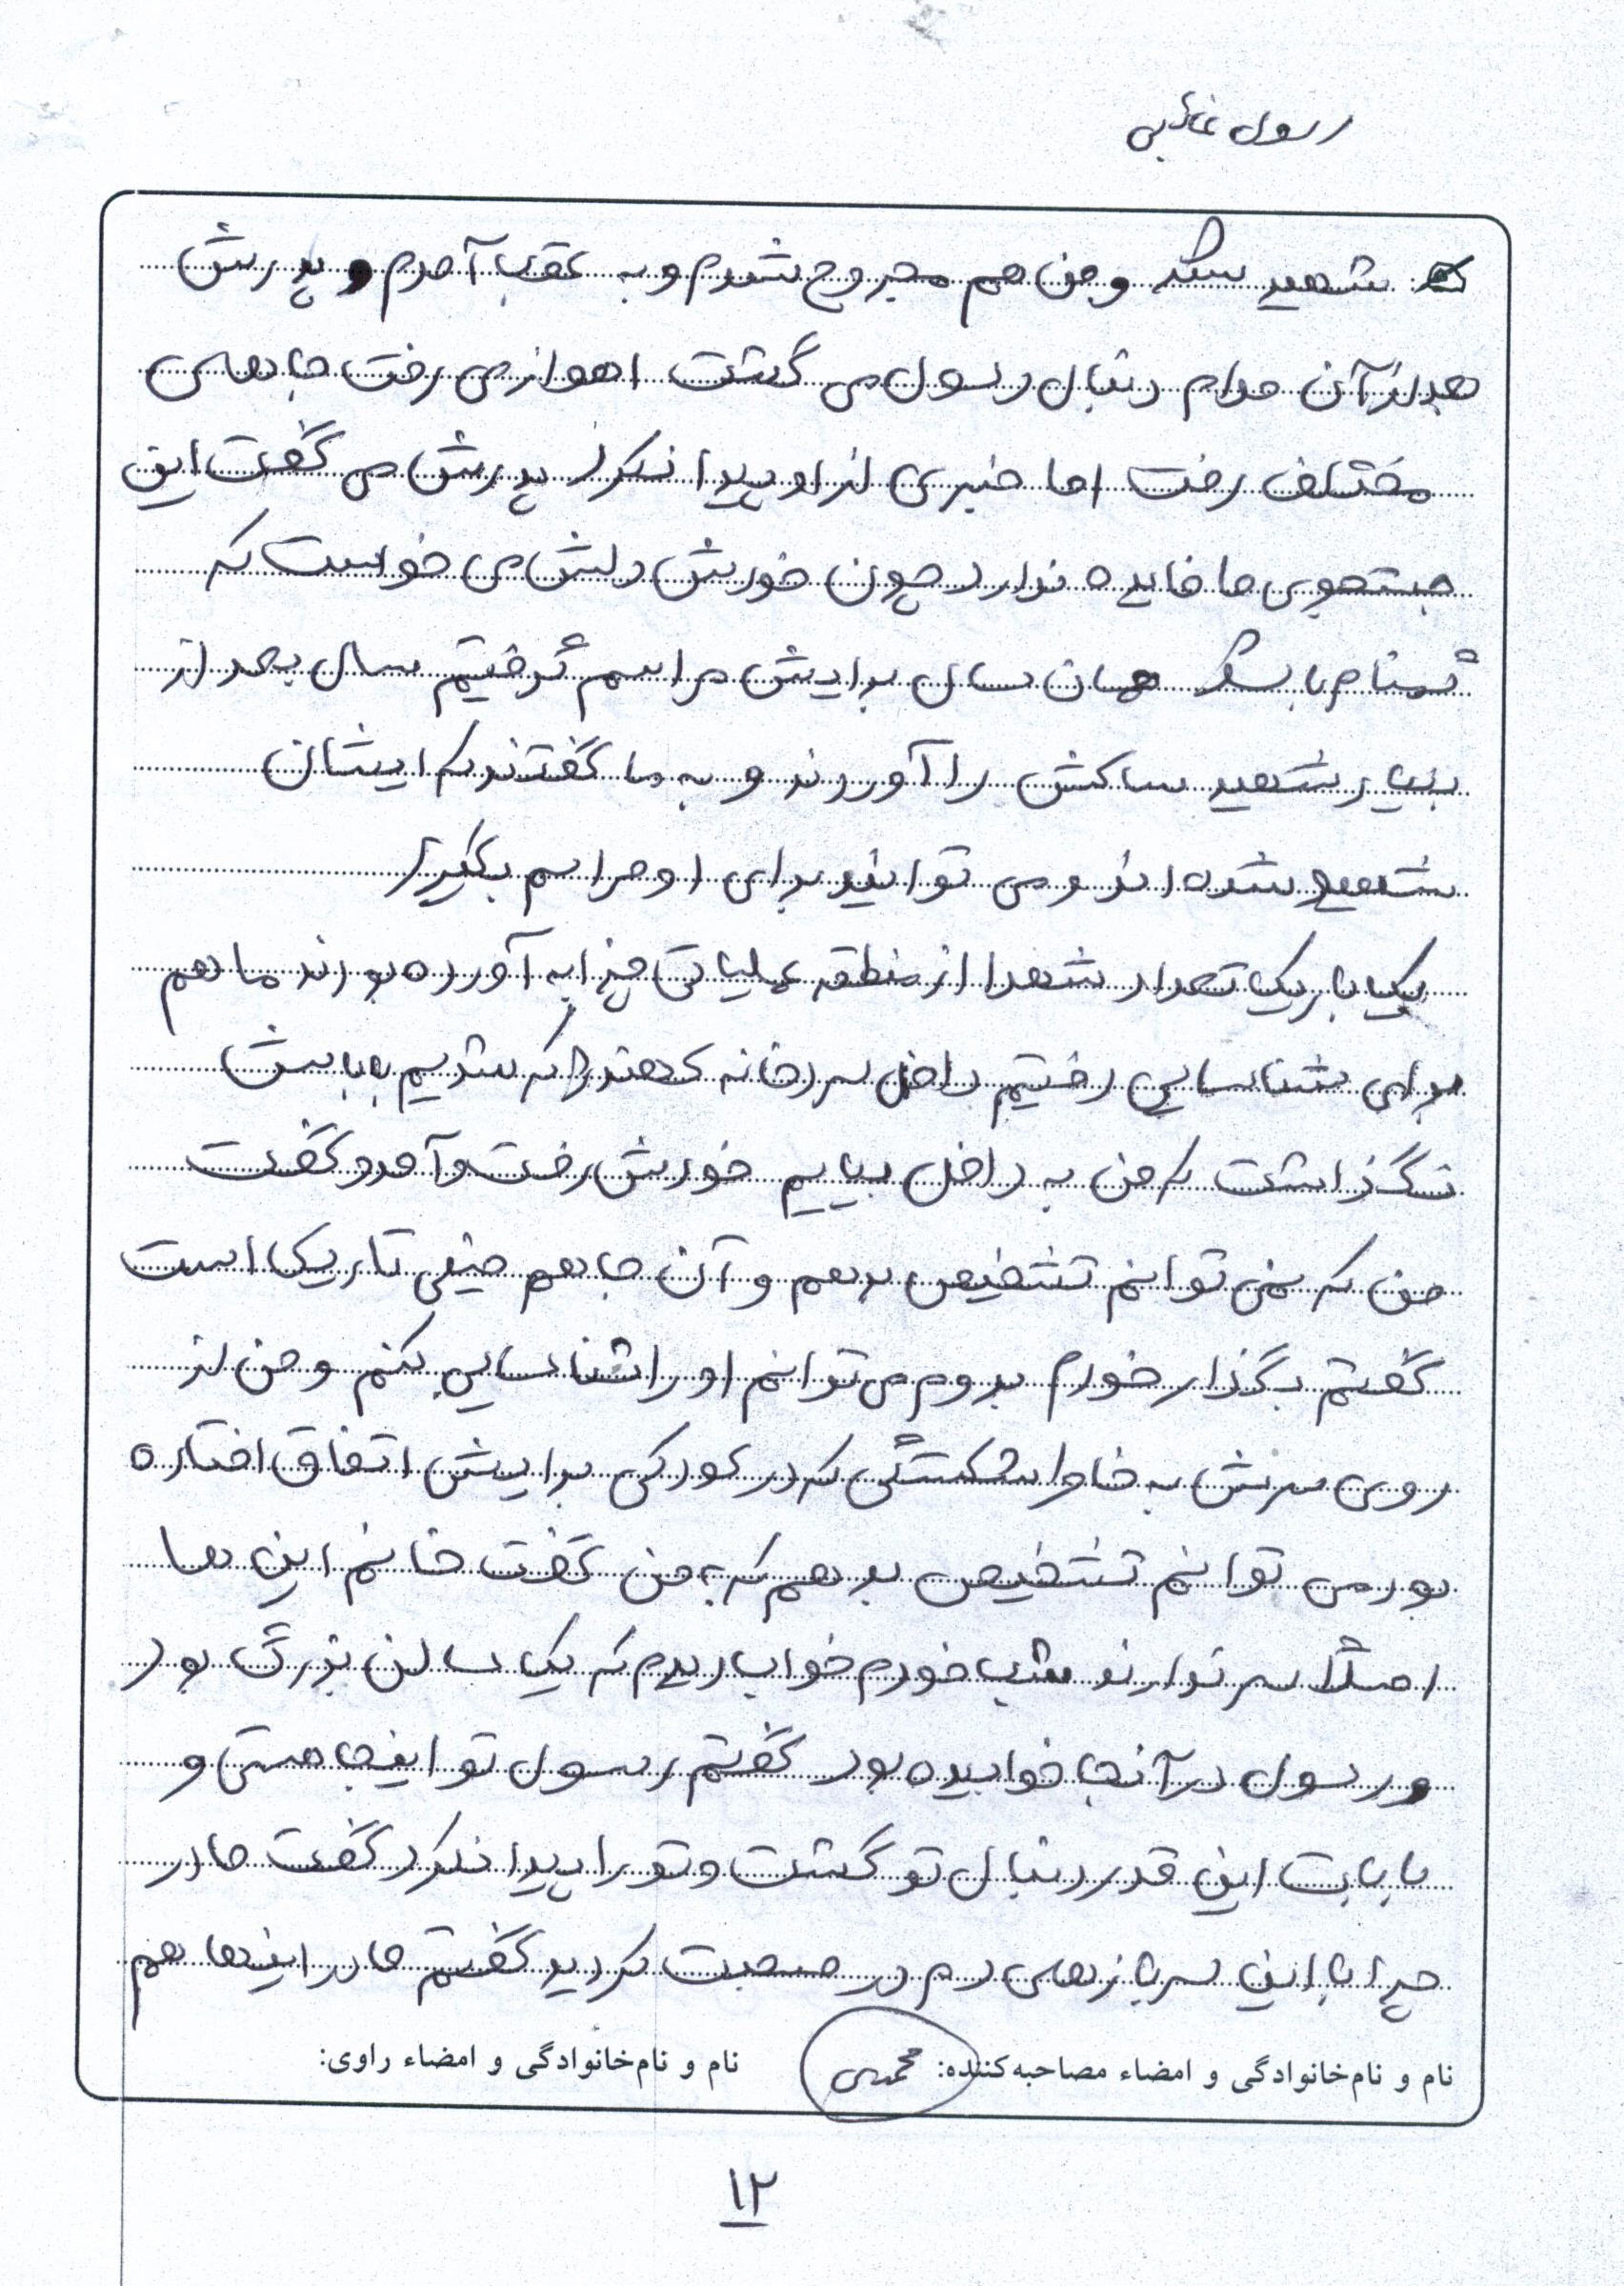 رسول غائبی
شهید شد و من هم مجروح شدم و به عقب آمدم و پدرش
بعد از آن مدام دنبال رسول می گشت اهواز می رفت جاهای
مختلف رفت اما خبری از او پیدا نکرد پدرش می گفت این
جستجوی ما فایده ندارد چون خودش دلش می خواست که
گمنام باشد همان سال برایش مراسم گرفتیم سال بعد از
بنیاد شهید ساکش را آوردند و به ما گفتند که ایشان
شهید شده اند و می توانید برای او مراسم بگیرید
یک بار یک تعداد شهدا از منطقه عملیاتی آورده بودند ما هم
برای شناسایی رفتیم داخل سردخانه که شدیم باباش
نگذاشت که من به داخل بیایم خودش رفت و آمد و گفت
من که نمی توانم تشخیص بدهم و آن جا هم خیلی تاریک است
گفتم بگذار خودم بروم می توانم او را شناسایی بکنم و من از
روی سرش به خاطر شکستگی که در کودکی برایش اتفاق افتاده
بود می توانم تشخیص بدهم که به من گفت خانم این ها
اصلاً سر ندارند شب خودم خواب دیدم که یک سالن بزرگ بود
و رسول در آنجا خوابیده بود گفتم رسول تو اینجا هستی و
بابات این قدر دنبال تو گشت و تو را پیدا نکرد گفت مادر
چرا با این سربازهای دم در صحبت کردید گفتم مادر اینها هم
نام و نام‌خانوادگی و امضاء مصاحبه‌کننده: محمدی نام و نام‌خانوادگی و امضاء راوی:
۱۲